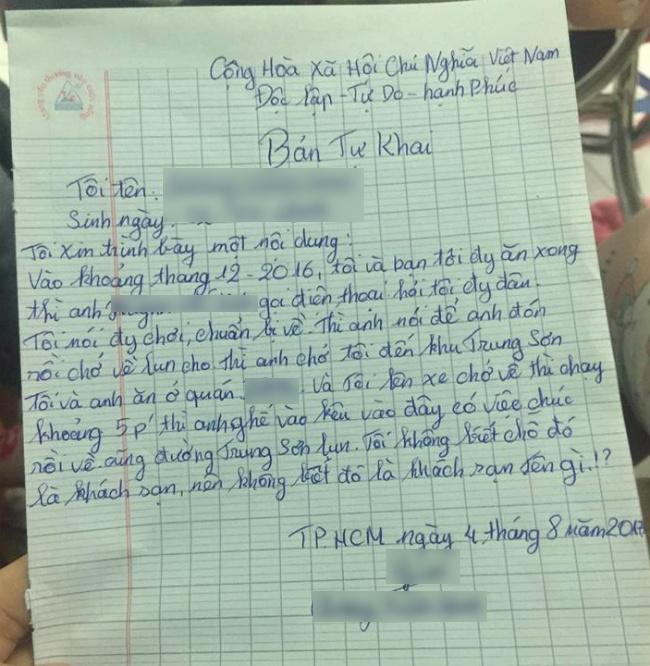 Cộng Hoà Xã Hội Chủ Nghĩa Việt Nam
Độc lập - Tự Do - hạnh Phúc
Bán Tự Khai
Tôi tên:
Sinh ngày:
Tôi xin trình bày một nội dung:
Vào khoảng tháng 12 - 2016, tôi và bạn tôi đy ăn xong
thì anh gọi điện thoại hỏi tôi đy đâu.
Tôi nói đy chơi, chuẩn bị về. Thì anh nói để anh đón
rồi chớ về lun cho. thì anh chớ tôi đến khu Trung Sơn
Tôi và anh ăn ở quán. và Tôi lên xe chớ về thì chạy
khoảng 5p' thì anh ghé vào kêu vào đây có việc chúc
rồi về cũng đường Trung Sơn lun. Tôi không biết chỗ đó
là khách sạn, nên không biết đó là khách sạn tên gì.!?
TP.HCM ngày 4 tháng 8 năm 2017